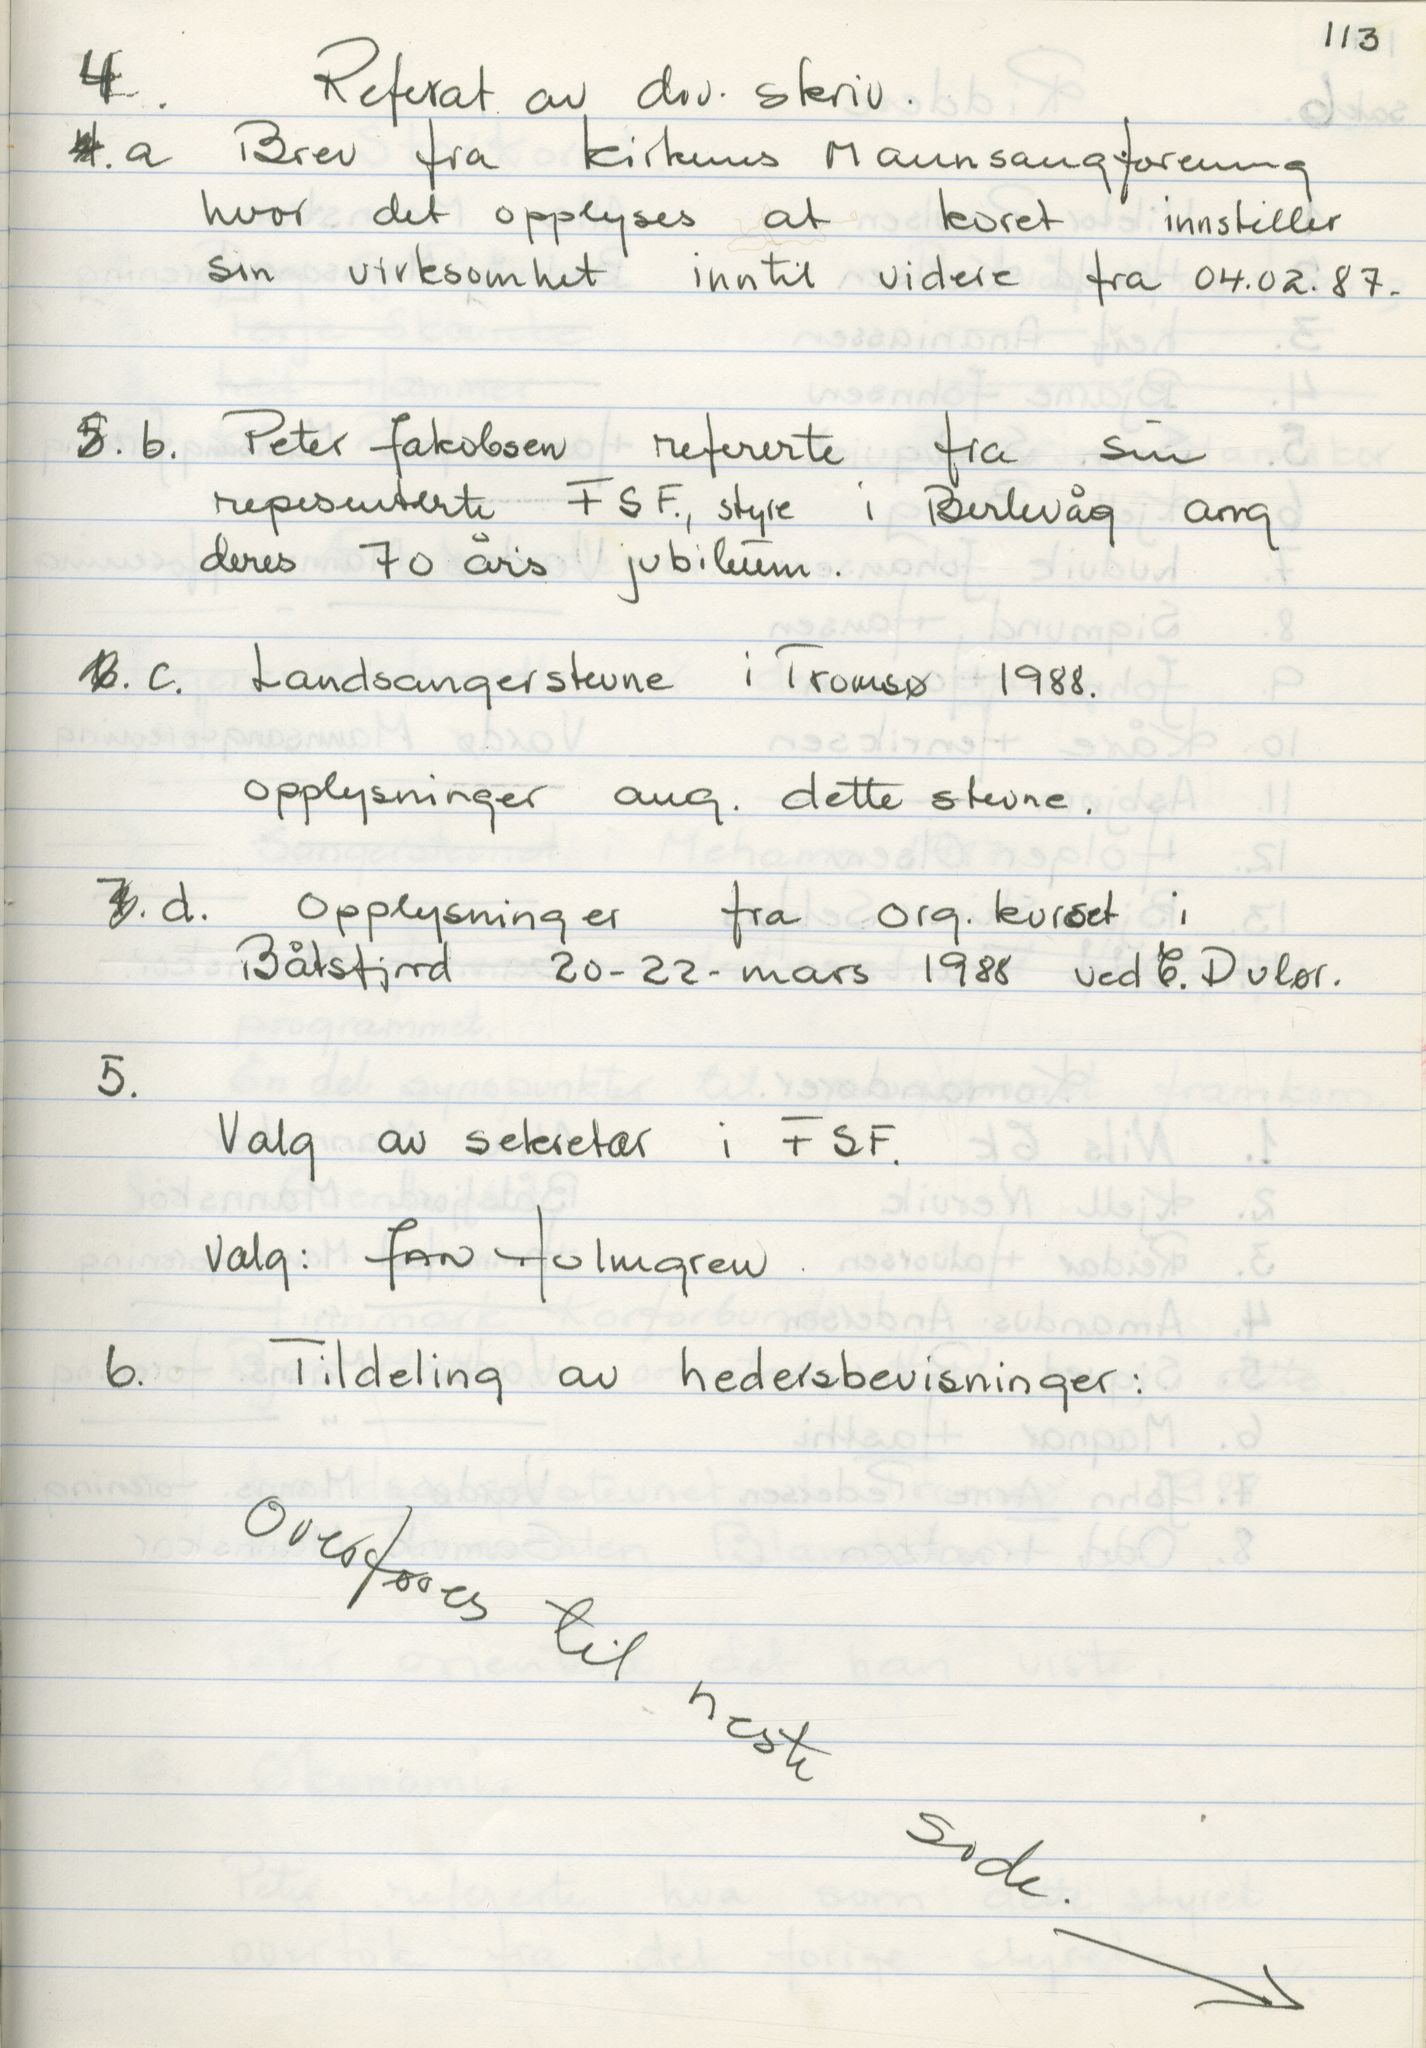 113
4. Referat av div. skriv.
4. a Brev fra Kirkenes Mannsangforening
hvor det opplyses at koret innstiller
sin virksomhet inntil videre fra 04.02.87.
5. b. Peter Jakobsen refererte fra sin
representerte FSF., styre i Berlevåg ang
deres 70 års jubileum.
6. c. Landsangerstevne i Tromsø 1988.
opplysninger ang. dette stevne.
7. d. Opplysninger fra org. kurset i
Båtsfjord 20-22-mars 1988 ved E. Dulør.
5.
Valg av sekretær i FSF.
Valg: Jan Holmgren
6. Tildeling av hedersbevisninger:
Overføres til neste side.